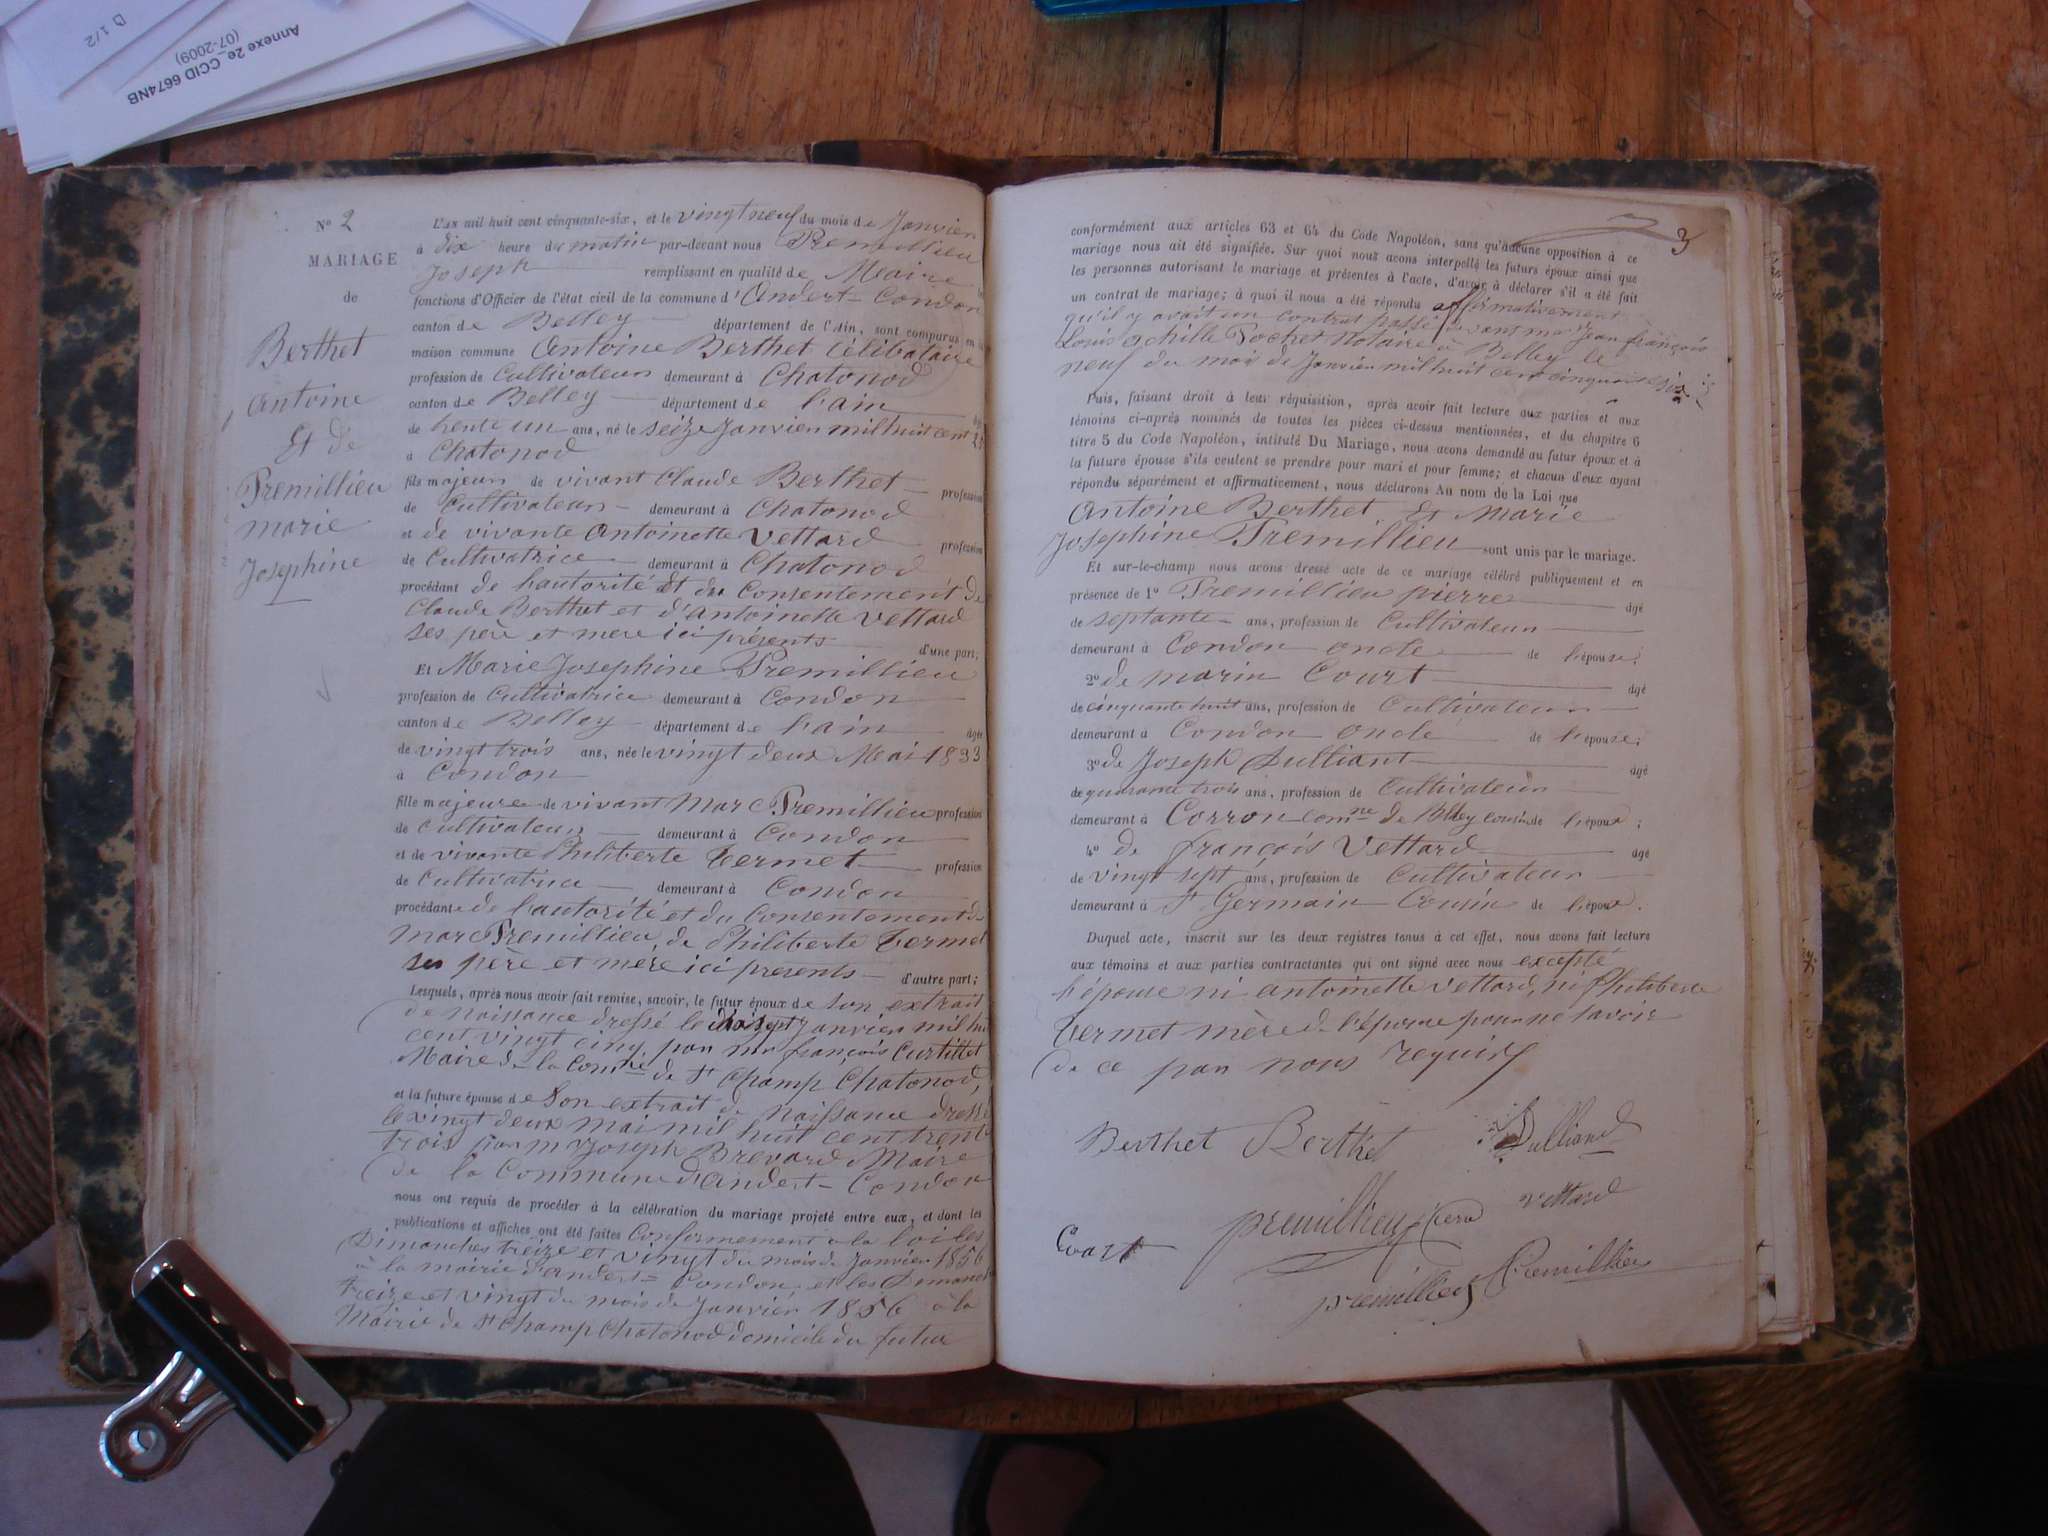 Annexe 2e_CCID 6674NB
(07-2009)
D 1/2
N° 2
MARIAGE
de
Berthet
Antoine
Et de
Premillieu
marie
Josephine
L'an mil huit cent cinquante-six, et le vingt neuf du mois de Janvier
à dix heure du matin par-devant nous Premillieu
Joseph remplissant en qualité de Maire
fonctions d'Officier de l'état civil de la commune d'Andert-Condon
canton de Belley département de l'Ain, sont comparus en la
maison commune Antoine Berthet Célibataire
profession de Cultivateur demeurant à Chatonod
canton de Belley département de l'ain
de trente un ans, né le seize Janvier mil huit cent 25
à Chatonod
fils majeur de vivant Claude Berthet profession
de Cultivateur demeurant à Chatonod
et de vivante Antoinette Vettard profession
de Cultivatrice demeurant à Chatonod
procédant de l'autorité et du Consentement de
Claude Berthet et d'Antoinette Vettard
ses père et mere ici présents d'une part;
Et Marie Josephine Premillieu
profession de Cultivatrice demeurant à Condon
canton de Belley département de l'ain âgée
de vingt trois ans, née le vingt deux Mai 1833
à Condon
fille majeure de vivant Marc Premillieu profession
de Cultivateur demeurant à Condon
et de vivante Philiberte Vermet profession
de Cultivatrice demeurant à Condon
procédante de l'autorité et du Consentement de
Marc Premillieu, de Philiberte Vermet
ses père et mere ici presents d'autre part;
Lesquels, après nous avoir fait remise, savoir, le futur époux de son extrait
de naissance dressé le dix sept Janvier mil huit
cent vingt cinq par mr françois Curtillet
Maire de la Comne de St Champ Chatonod,
et la future épouse de Son extrait de naissance dressé
le vingt deux mai mil huit cent trente
trois par mr Joseph Brevard Maire
de la Commune d'Andert-Condon
nous ont requis de procéder à la célébration du mariage projeté entre eux, et dont les
publications et affiches ont été faites Conformement à la loi les
Dimanches treize et vingt du mois de Janvier 1856
à la mairie d'andert-Condon, et les Dimanches
treize et vingt du mois de Janvier 1856 à la
Mairie de St Champ Chatonod domicile du futur
3
conformément aux articles 63 et 64 du Code Napoléon, sans qu'aucune opposition à ce
mariage nous ait été signifiée. Sur quoi nous avons interpellé les futurs époux ainsi que
les personnes autorisant le mariage et présentes à l'acte, d'avoir à déclarer s'il a été fait
un contrat de mariage; à quoi il nous a été répondu affirmativement
qu'il y avait un contrat passé devant me Jean françois
Louis achille Pochet Notaire à Belley le
neuf du mois de Janvier mil huit cent cinquante six
Puis, faisant droit à leur réquisition, après avoir fait lecture aux parties et aux
témoins ci-après nommés de toutes les pièces ci-dessus mentionnées, et du chapitre 6
titre 5 du Code Napoléon, intitulé Du Mariage, nous avons demandé au futur époux et à
la future épouse s'ils veulent se prendre pour mari et pour femme; et chacun d'eux ayant
répondu séparément et affirmativement, nous déclarons Au nom de la Loi que
Antoine Berthet Et Marie
Josephine Premillieu sont unis par le mariage.
Et sur-le-champ nous avons dressé acte de ce mariage célébré publiquement et en
présence de 1° Premillieu pierre âgé
de septante ans, profession de Cultivateur
demeurant à Condon oncle de l'épouse;
2° de marin Court âgé
de cinquante huit ans, profession de Cultivateur
demeurant à Condon oncle de l'épouse;
3° de Joseph Dulliant âgé
de quarante trois ans, profession de Cultivateur
demeurant à Corron comne de Belley cousin de l'époux;
4° de françois Vettard âgé
de vingt sept ans, profession de Cultivateur
demeurant à St Germain Cousin de l'époux.
Duquel acte, inscrit sur les deux registres tenus à cet effet, nous avons fait lecture
aux témoins et aux parties contractantes qui ont signé avec nous excepté
l'épouse ni antoinette Vettard, ni Philiberte
Vermet mère de l'épouse pour ne savoir
de ce par nous requis
Berthet Berthet Dulliand
premillieu Vettard
Court
premillieu Premillieu